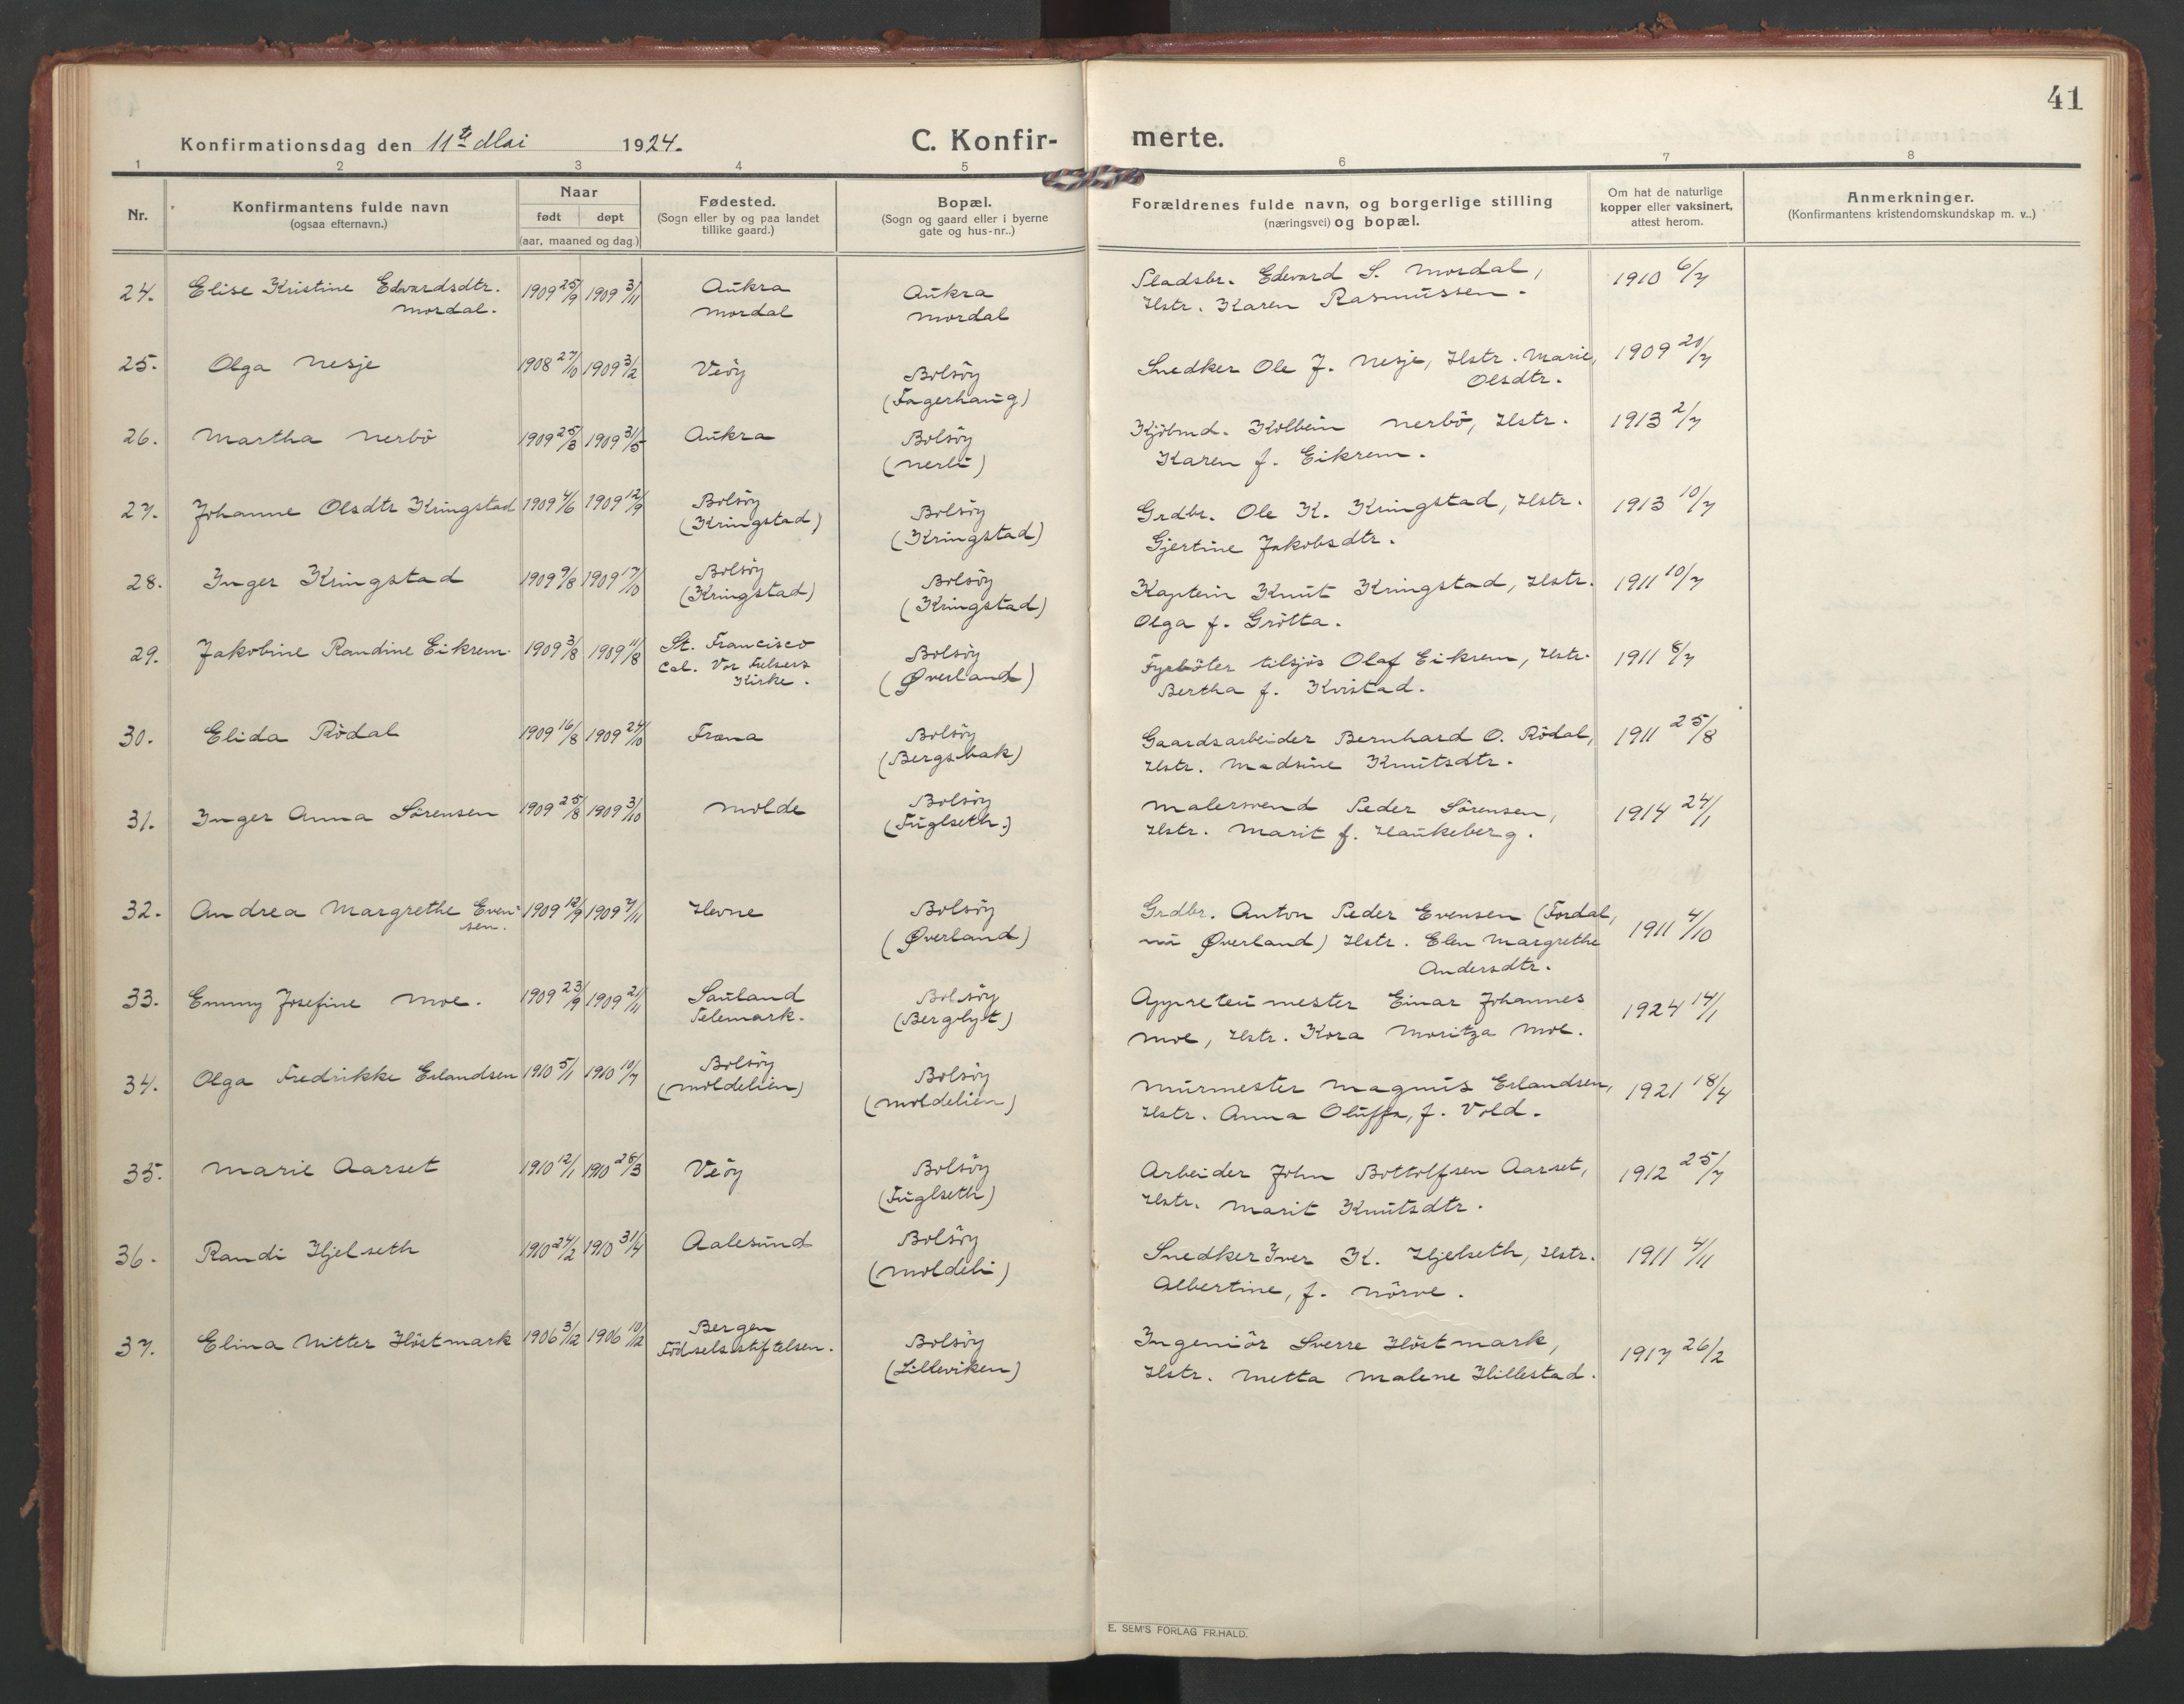 41
Konfirmationsdag den 11te Mai 1924.
C. Konfir- merte.
1 2 3 4 5 6 7 8
Nr.
Konfirmantens fulde navn
(ogsaa efternavn.)
Naar
født døpt
(aar, maaned og dag.)
Fødested.
(Sogn eller by og paa landet
tillike gaard.)
Bopæl.
(Sogn og gaard eller i byerne
gate og hus-nr..)
Forældrenes fulde navn, og borgerlige stilling
(næringsvei) og bopæl.
Om hat de naturlige
kopper eller vaksinert,
attest herom.
Anmerkninger.
(Konfirmantens kristendomskundskap m. v..)
24. Elise Kristine Edvardsdtr. 1909 25/9 1909 3/11 Aukra Aukra Pladsbr. Edevard S. Mordal, 1910 6/7
Mordal. Mordal Mordal Hstr. Karen Rasmussen.
25. Olga Nesje 1908 27/10 1909 3/2 Veöy Bolsöy Snedker Ole J. Nesje, Hstr. Marie, 1909 20/7
(Fagerhaug) Olsdtr.
26. Martha Nerbö 1909 25/3 1909 31/5 Aukra Bolsöy Kjöbmd. Kolbein Nerbö, Hstr. 1913 2/7
(Nerli) Karen f. Eikrem.
27. Johanne Olsdtr Kringstad 1909 4/6 1909 12/9 Bolsöy Bolsöy Grdbr. Ole K. Kringstad, Hstr. 1913 10/7
(Kringstad) (Kringstad) Gjertine Jakobsdtr.
28. Inger Kringstad 1909 9/8 1909 17/10 Bolsöy Bolsöy Kaptein Knut Kringstad, Hstr. 1911 10/7
(Kringstad) (Kringstad) Olga f. Grötta.
29. Jakobine Randine Eikrem. 1909 3/8 1909 11/8 St. Francisco Bolsöy Fyrböter tilsjös Olaf Eikrem, Hstr. 1911 8/7
Cal. Vor Frelsers (Øverland) Bertha f. Kvistad.
Kirke.
30. Elida Rödal 1909 16/8 1909 24/10 Fræna Bolsöy Gaardsarbeider Bernhard O. Rödal, 1911 25/8
(Bergsbak) Hstr. Madsine Knutsdtr.
31. Inger Anna Sörensen 1909 25/8 1909 3/10 Molde Bolsöy Malersvend Peder Sörensen, 1914 24/1
(Fuglseth.) Hstr. Marit f. Haukeberg.
32. Andrea Margrethe Even- 1909 12/9 1909 7/11 Hevne Bolsöy Grdbr. Anton Peder Evensen (Fordal,
sen. (Øverland) nu Øverland) Hstr. Elen Margrethe 1911 4/10
Andersdtr.
33. Emmy Josefine Moe. 1909 23/9 1909 21/11 Sauland Bolsöy Appreteurmester Einar Johannes 1924 14/1
Telemark. (Berglyt) Moe, Hstr. Kora Moritza Moe.
34. Olga Fredrikke Erlandsen 1910 5/1 1910 10/7 Bolsöy Bolsöy Murmester Magnus Erlandsen, 1921 18/4
(Moldelien) (Moldelien) Hstr. Anna Oluffa, f. Vold.
35. Marie Aarset 1910 12/1 1910 28/3 Veöy Bolsöy Arbeider John Bottolfsen Aarset, 1912 25/7
(Fuglseth) Hstr. Marit Knutsdtr.
36. Randi Hjelseth 1910 24/2 1910 31/4 Aalesund Bolsöy Snedker Iver K. Hjelseth, Hstr. 1911 4/11
(Moldeli) Albertine, f. Nörve.
37. Elina Nitter Höstmark 1906 3/2 1906 10/12 Bergen Bolsöy Ingeniör Sverre Höstmark, 1917 26/2
Födselsstiftelsen. (Lilleviken) Hstr. Metta Malene Hillestad.
E. SEM'S FORLAG FR.HALD.